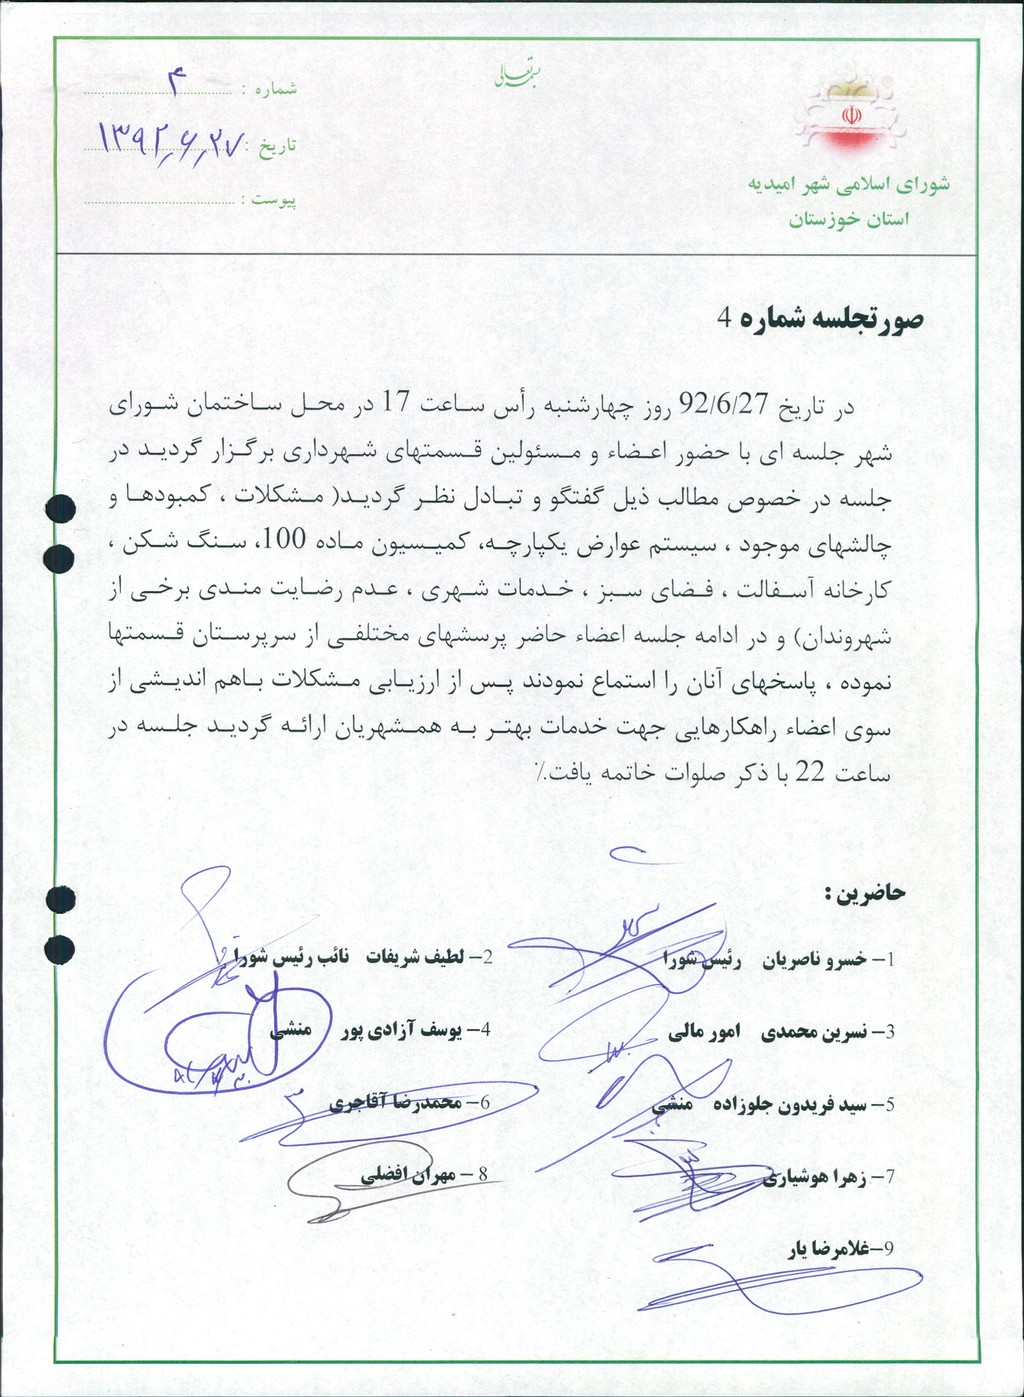 بسمه تعالی
شورای اسلامی شهر امیدیه
استان خوزستان
شماره : ۴
تاریخ : ۱۳۹۲٫۶٫۲۷
پیوست :
صورتجلسه شماره 4
در تاریخ 92/6/27 روز چهارشنبه رأس ساعت 17 در محل ساختمان شورای
شهر جلسه ای با حضور اعضاء و مسئولین قسمتهای شهرداری برگزار گردید در
جلسه در خصوص مطالب ذیل گفتگو و تبادل نظر گردید( مشکلات ، کمبودها و
چالشهای موجود ، سیستم عوارض یکپارچه، کمیسیون ماده 100، سنگ شکن ،
کارخانه آسفالت ، فضای سبز ، خدمات شهری ، عدم رضایت مندی برخی از
شهروندان) و در ادامه جلسه اعضاء حاضر پرسشهای مختلفی از سرپرستان قسمتها
نموده ، پاسخهای آنان را استماع نمودند پس از ارزیابی مشکلات باهم اندیشی از
سوی اعضاء راهکارهایی جهت خدمات بهتر به همشهریان ارائه گردید جلسه در
ساعت 22 با ذکر صلوات خاتمه یافت./
حاضرین :
1- خسرو ناصریان رئیس شورا 2- لطیف شریفات نائب رئیس شورا
3- نسرین محمدی امور مالی 4- یوسف آزادی پور منشی
5- سید فریدون جلوزاده منشی 6- محمدرضا آقاجری
7- زهرا هوشیاری 8 - مهران افضلی
9-غلامرضا یار